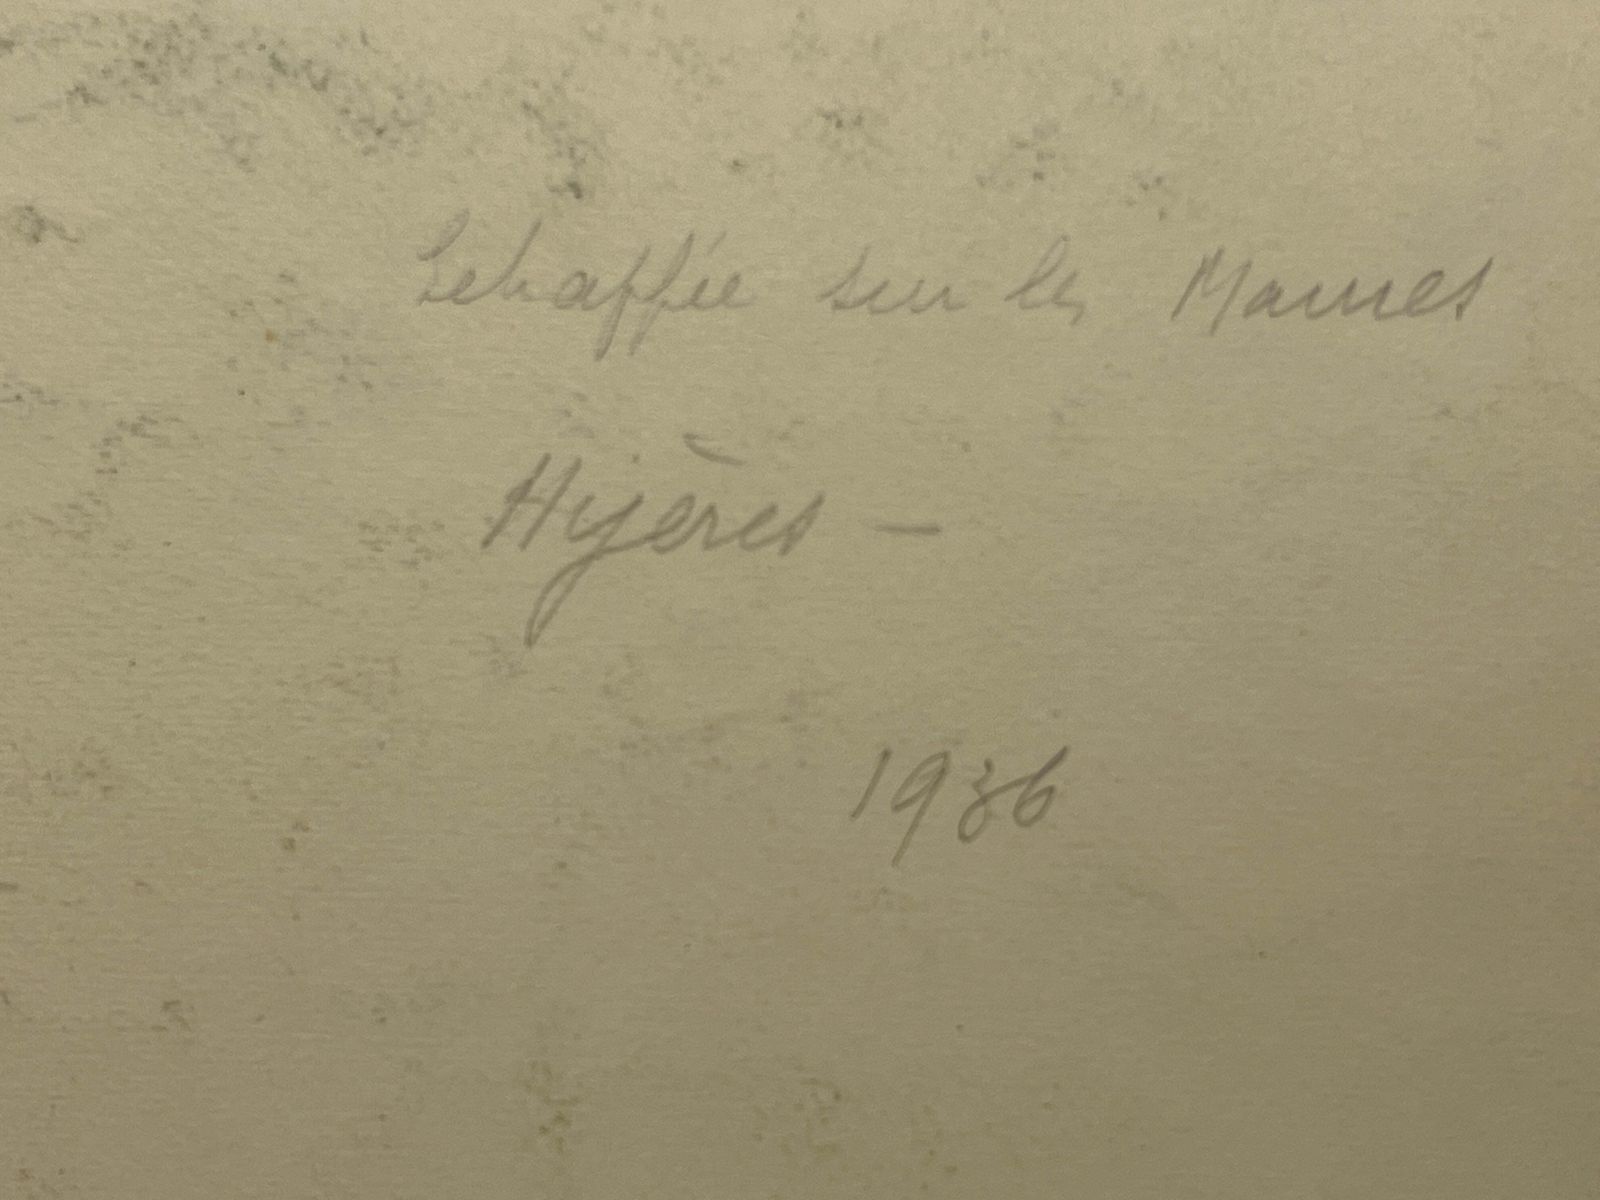 Echappée sur les Maures
Hyères —
1936